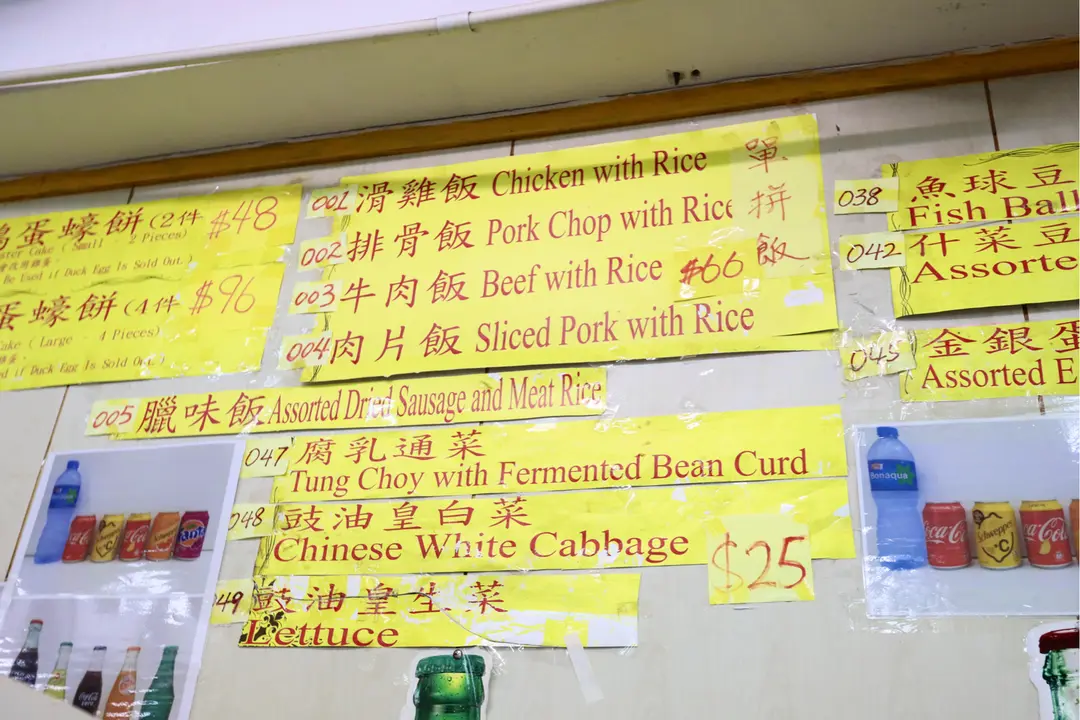 蛋蠔餅(2件 $48
ster Cake ( Small - 2 Pieces)
Be Used if Duck Egg Is Sold Out.)
蛋蠔餅(4件 $96
Cake ( Large - 4 Pieces)
d if Duck Egg Is Sold Out.)
001 滑雞飯 Chicken with Rice
002 排骨飯 Pork Chop with Rice
003 牛肉飯 Beef with Rice $66
004 肉片飯 Sliced Pork with Rice
單拼飯
005 臘味飯 Assorted Dried Sausage and Meat Rice
047 腐乳通菜
Tung Choy with Fermented Bean Curd
048 豉油皇白菜
Chinese White Cabbage
$25
49 豉油皇生菜
Lettuce
038 魚球豆
Fish Ball
042 什菜豆
Assorte
045 金銀蛋
Assorted E
Bonaqua
Coca-Cola
Schweppes
+C
Coca-Cola
Fanta
Coca-Cola